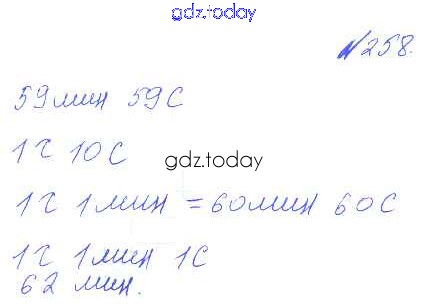 gdz.today
№258.
59мин 59с
1ч 10с
gdz.today
1ч 1мин = 60мин 60с
1ч 1мин 1с
62 мин.